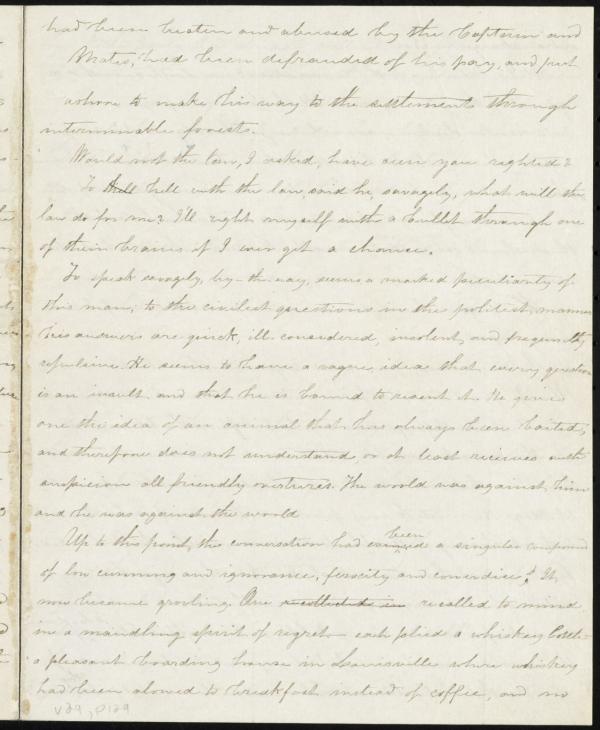 had been beaten and abused by the Captain and
Mates, had been defrauded of his pay, and put
ashore to make his way to the settlement through
interminable forests.
Would not the law, I asked, have seen you righted?
To Hell hell with the law, said he, savagely, what will the
law do for me? I'll right myself with a bullet through one
of their brains if I ever get a chance.
To speak savagely, by-the-way, seems a marked peculiarity of
this man; to the civilest questions in the politest manner
his answers are quick, ill considered, insolent, and frequently
repulsive. He seems to have a vague idea that every question
is an insult and that he is bound to resent it. He gives
one the idea of an animal that has always been baited,
and therefore does not understand, or at least receives with
suspicion all friendly overtures. The world was against him
and he was against the world
been
Up to this point, the conversation had a singular compound
of low cunning and ignorance, ferocity and cowardice. It
now became groveling. One recollected in recalled to mind
in a maudling spirit of regret each plied a whiskey bottle
a pleasant boarding house in Louisville where whiskey
had been alowed to breakfast instead of coffee, and no
v29, p129